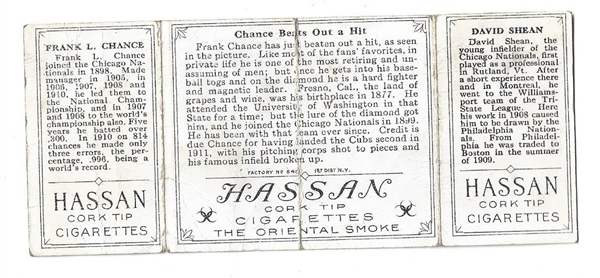 FRANK L. CHANCE
Frank L. Chance
joined the Chicago Na-
tionals in 1898. Made
manager in 1905, in
1906, 1907, 1908 and
1910, he led them to
the National Cham-
pionship, and in 1907
and 1908 to the world's
championship also. Five
years he batted over
.300. In 1910 on 814
chances he made only
three errors, the per-
centage, .996, being a
world's record.
HASSAN
CORK TIP
CIGARETTES
Chance Beats Out a Hit
Frank Chance has just beaten out a hit, as seen
in the picture. Like most of the fans' favorites, in
private life he is one of the most retiring and un-
assuming of men; but once he gets into his base-
ball togs and on the diamond he is a hard fighter
and magnetic leader. Fresno, Cal., the land of
grapes and wine, was his birthplace in 1877. He
attended the University of Washington in that
State for a time; but the lure of the diamond got
him, and he joined the Chicago Nationals in 1899.
He has been with that team ever since. Credit is
due Chance for having landed the Cubs second in
1911, with his pitching corps shot to pieces and
his famous infield broken up.
FACTORY No 649 1ST DIST N.Y.
HASSAN
CORK TIP
CIGARETTES
THE ORIENTAL SMOKE
DAVID SHEAN
David Shean, the
young infielder of the
Chicago Nationals, first
played as a professional
in Rutland, Vt. After
a short experience there
and in Montreal, he
went to the Williams-
port team of the Tri-
State League. Here
his work in 1908 caused
him to be drawn by the
Philadelphia Nation-
als. From Philadel-
phia he was traded to
Boston in the summer
of 1909.
HASSAN
CORK TIP
CIGARETTES